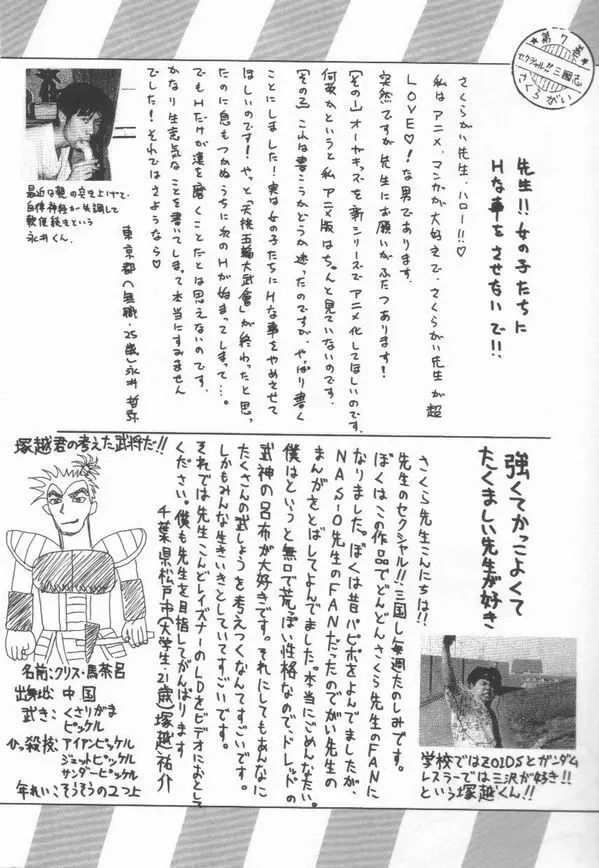 ★第7巻★
セクシャル!!三國志
さくらがい
先生!!女の子たちに
Hな事をさせないで!!
さくらがい先生、ハロー!!♡
私はアニメ・マンガが大好きで、さくらがい先生が超
LOVE♡!な男であります。
突然ですが先生にお願いがふたつあります!
【その1】オーヤキッズを新シリーズでアニメ化してほしいのです。
何故かというと私、アニメ版はちゃんと見ていないのです。
【その2】これは書こうかどうか迷ったのですが、やっぱり書く
ことにしました!実は女の子たちにHな事をやめさせて
ほしいのです!やっと「天桃五輪大武會」が終わったと思っ
たのに息もつかぬうちに次のHが始まってしまって…。
でもHだけが漢を磨くことだとは思えないのです。
かなり生意気なことを書いてしまって本当にすみません
でした!それではさようなら♡
東京都(無職・25歳)永井哲弥
最近は親の突き上げで、
自律神経が失調して
軟便続きという
永井くん。
強くてかっこよくて
たくましい先生が好き
さくら先生こんにちは!!
先生のセクシャル!!三国し毎週たのしみです。
ぼくはこの作品でどんどんさくら先生のFANに
なりました。ぼくは昔パピポをよんでましたが、
NAS-O先生のFANだったのでがい先生の
まんがをとばしてよんでました。本当にごめんなさい。
僕はというと無口で荒っぽい性格なので、ドレッドの
武神の呂布が大好きです。それにしてもあんなに
たくさんの武しょうを考えつくなんてすごいです。
しかもみんな生きいきとしていてすごいです。
それでは先生こんどレイズナーのLDをビデオにおとして
ください。僕も先生を目指してがんばります
千葉県松戸市(大学生・21歳)塚越祐介
学校ではZOIDSとガンダム
レスラーでは三沢が好き!!
という塚越くん!!
塚越君の考えた武将だ!!
名前:クリス・馬茶呂
出身地:中国
武き:くさりがま
ピッケル
ひっ殺技:アイアンピッケル
ジェットピッケル
サンダーピッケル
年れいこうそうの2つ上